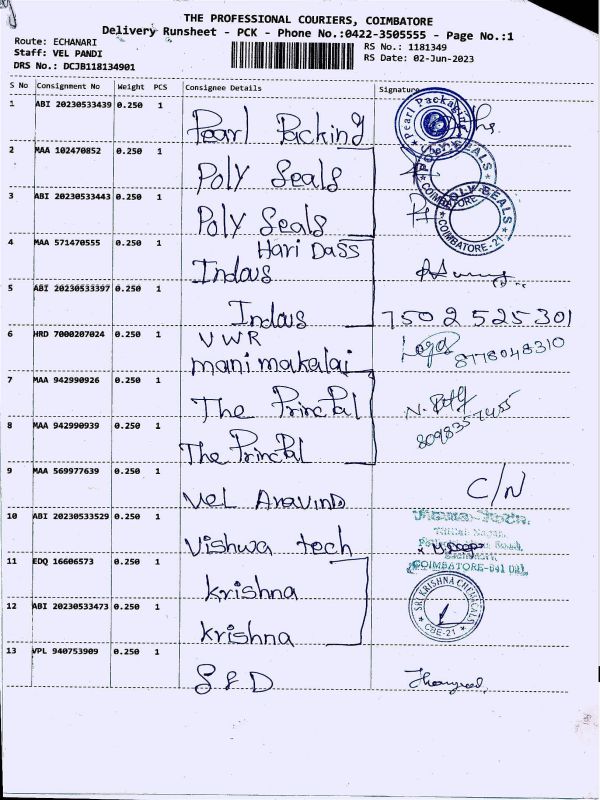 THE PROFESSIONAL COURIERS, COIMBATORE
Delivery Runsheet - PCK - Phone No.:0422-3505555 - Page No.:1
Route: ECHANARI
Staff: VEL PANDI
DRS No.: DCJB118134901
RS No.: 1181349
RS Date: 02-Jun-2023
S No Consignment No Weight PCS Consignee Details Signature
1 ABI 20230533439 0.250 1
Pearl Packing
Pearl Packaging
2 MAA 102470852 0.250 1
Poly Seals
POLY SEALS
COIMBATORE
3 ABI 20230533443 0.250 1
Poly Seals
POLY SEALS
COIMBATORE-21
4 MAA 571470555 0.250 1
Hari Dass
Indous
5 ABI 20230533397 0.250 1
Indous
7502525301
6 HRD 7000207024 0.250 1
VWR
manimakalai
8778048310
7 MAA 942990926 0.250 1
The Princpal
8098357455
8 MAA 942990939 0.250 1
The Princpal
9 MAA 569977639 0.250 1
Vel Aravind
C/N
10 ABI 20230533529 0.250 1
Vishwa tech
COIMBATORE-641 021
11 EDQ 16606573 0.250 1
krishna
SRI KRISHNA CHEMICALS
CBE-21
12 ABI 20230533473 0.250 1
krishna
13 VPL 940753909 0.250 1
S & D